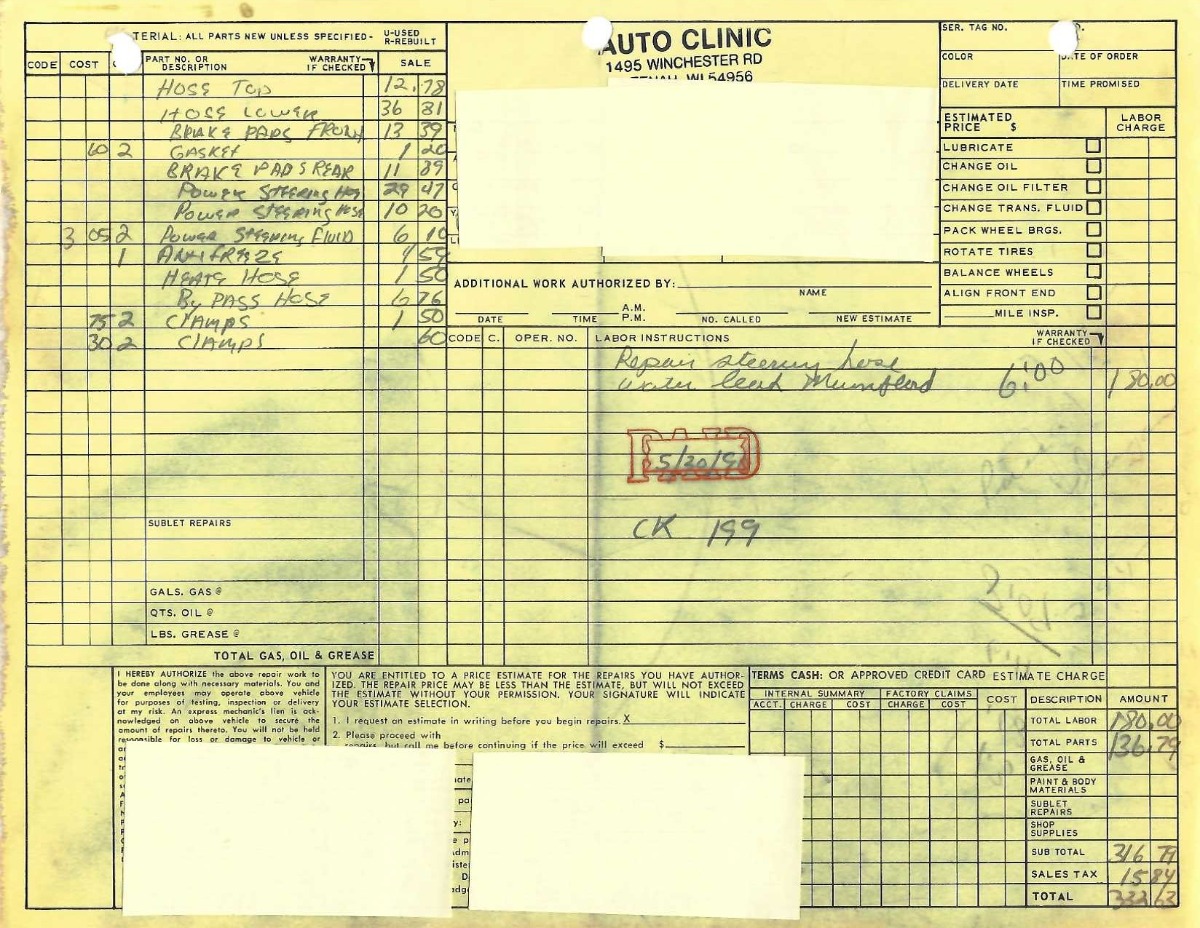 TERIAL: ALL PARTS NEW UNLESS SPECIFIED - U-USED R-REBUILT
CODE COST PART NO. OR DESCRIPTION WARRANTY IF CHECKED SALE
HOSE TOP 12.78
HOSE LOWER 36 81
BRAKE PADS FRONT 13 39
60 2 GASKET 1 20
BRAKE PADS REAR 11 89
POWER STEERING HOS 29 47
POWER STEERING HOSE 10 20
3 05 2 POWER STEERING FLUID 6 10
1 ANTIFREEZE 4 59
HEATE HOSE 1 50
BY PASS HOSE 6 76
75 2 CLAMPS 1 50
30 2 CLAMPS 60
SUBLET REPAIRS
GALS. GAS @
QTS. OIL @
LBS. GREASE @
TOTAL GAS, OIL & GREASE
AUTO CLINIC
1495 WINCHESTER RD
WI 54956
SER. TAG NO.
COLOR DATE OF ORDER
DELIVERY DATE TIME PROMISED
ESTIMATED PRICE $ LABOR CHARGE
LUBRICATE
CHANGE OIL
CHANGE OIL FILTER
CHANGE TRANS. FLUID
PACK WHEEL BRGS.
ROTATE TIRES
BALANCE WHEELS
ALIGN FRONT END
MILE INSP.
ADDITIONAL WORK AUTHORIZED BY:
NAME
DATE TIME A.M. P.M. NO. CALLED NEW ESTIMATE
CODE C. OPER. NO. LABOR INSTRUCTIONS WARRANTY IF CHECKED
Repair steering hose
water 6.00 180.00
PAID
5/20/9
CK 199
I HEREBY AUTHORIZE the above repair work to
be done along with necessary materials. You and
your employees may operate above vehicle
for purposes of testing, inspection or delivery
at my risk. An express mechanic's lien is ack-
nowledged on above vehicle to secure the
amount of repairs thereto. You will not be held
responsible for loss or damage to vehicle or
YOU ARE ENTITLED TO A PRICE ESTIMATE FOR THE REPAIRS YOU HAVE AUTHOR-
IZED. THE REPAIR PRICE MAY BE LESS THAN THE ESTIMATE, BUT WILL NOT EXCEED
THE ESTIMATE WITHOUT YOUR PERMISSION. YOUR SIGNATURE WILL INDICATE
YOUR ESTIMATE SELECTION.
1. I request an estimate in writing before you begin repairs. X
2. Please proceed with
repairs, but call me before continuing if the price will exceed $
TERMS CASH: OR APPROVED CREDIT CARD ESTIMATE CHARGE
INTERNAL SUMMARY FACTORY CLAIMS COST DESCRIPTION AMOUNT
ACCT. CHARGE COST CHARGE COST
TOTAL LABOR 180.00
TOTAL PARTS 136.79
GAS, OIL & GREASE
PAINT & BODY MATERIALS
SUBLET REPAIRS
SHOP SUPPLIES
SUB TOTAL 316 79
SALES TAX 15 84
TOTAL 332 63